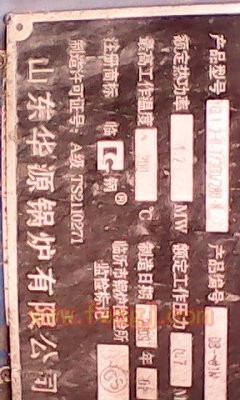 产品型号 产品编号
额定热功率 1.2 MW 额定工作压力 0.7
最高工作温度 ℃ 制造日期 年
注册商标 临 锅® 临沂市锅炉检验所
监检标记
制造许可证号：A级 TS2110271
山东华源锅炉有限公司